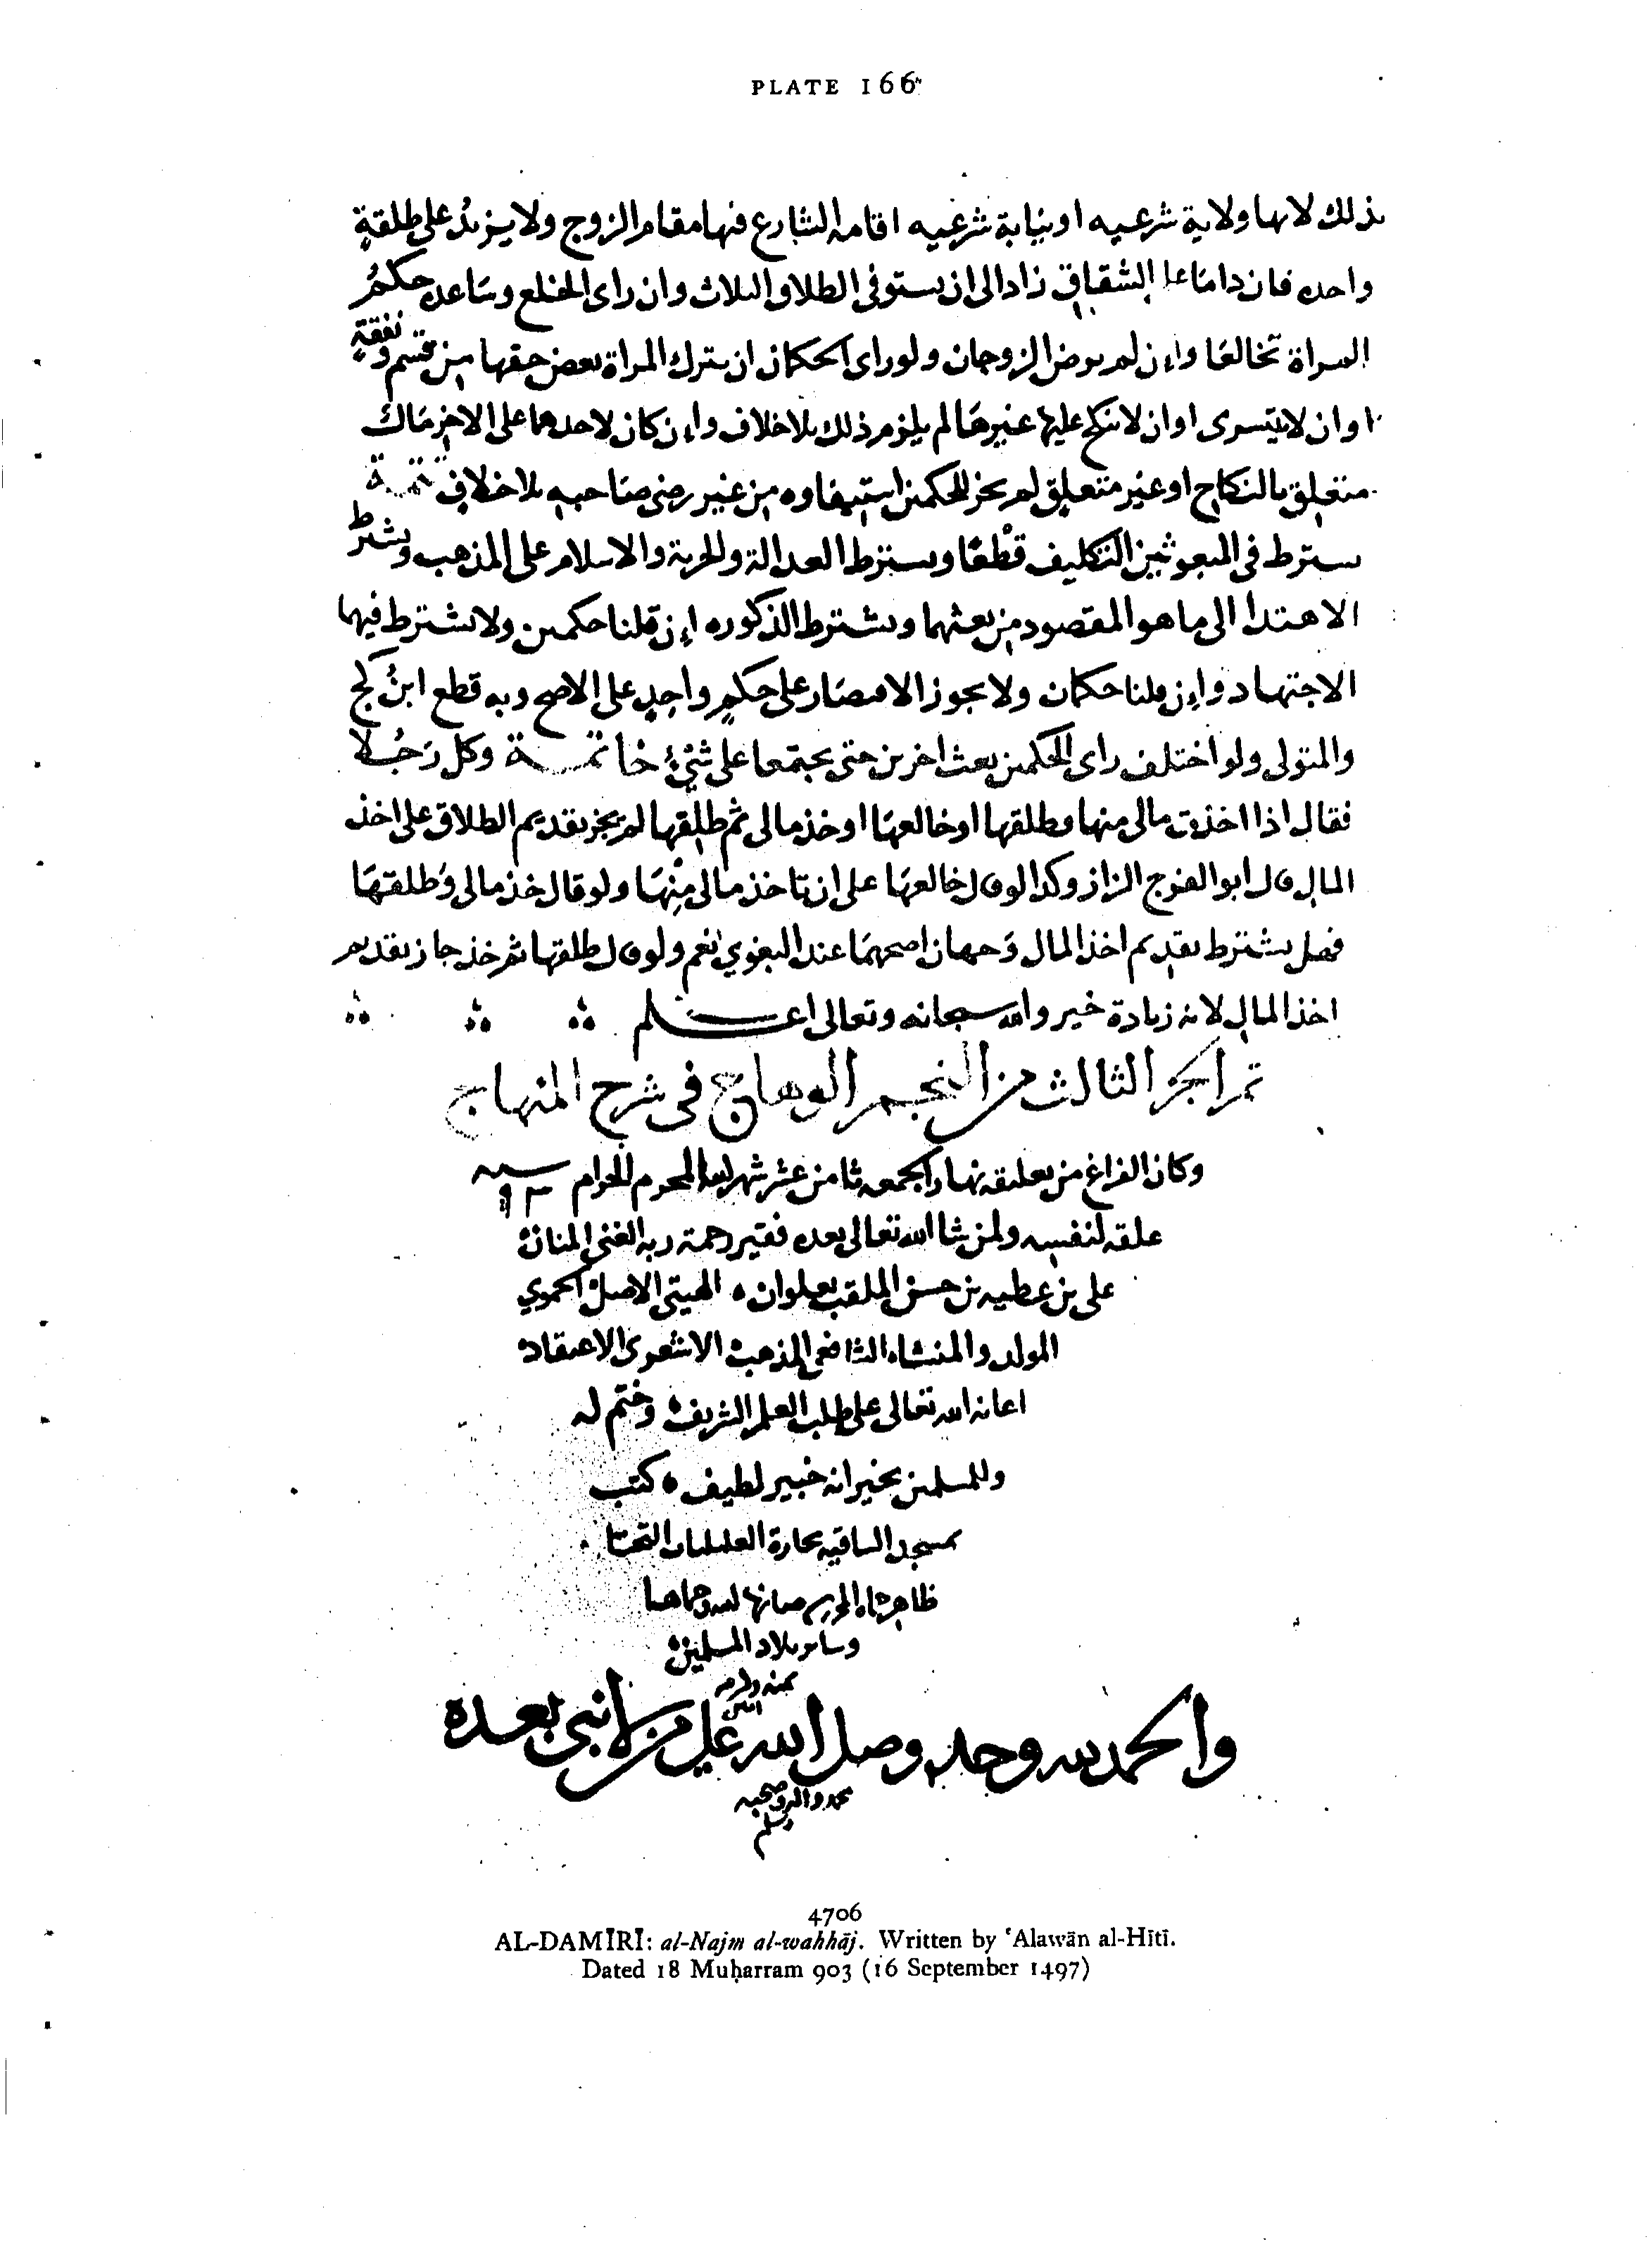 PLATE 166
بذلك لانها ولاية شرعيه او نيابة شرعيه اقامه الشارع فيها مقام الزوج ولا يزيد على طلقةٍ
واحده فان داما على الشقاق زاد الى ان يستوفى الطلاق الثلاث وان راى الخلع وساعده حكمُ
المراة تخالعا وان لم يرض الزوجان ولو راى الحكمان ان تترك المراة بعض حقها من قسم ونفقةٍ
او ان لا يتسرى او ان لا ينكح عليها غيرها لم يلزم ذلك بلا خلاف وان كان لاحدهما على الاخر مال
متعلق بالنكاح او غير متعلق لم يجز للحكمين استيفاوه من غير رضى صاحبه بلا خلاف تتمة
يشترط فى المبعوثين التكليف قطعًا ويشترط العدالة والحرية والاسلام على المذهب ويشترط
الاهتدا الى ما هو المقصود من بعثهما ويشترط الذكوره ان قلنا حكمين ولا يشترط فيهما
الاجتهاد وان قلنا حكمان ولا يجوز الاقتصار على حكمٍ واحدٍ على الاصح وبه قطع ابنُ كج
والمتولى ولو اختلف راى الحكمين بعث اخرين حتى يجتمعا على شىٍٔ خاتمة وكل رَجُلا
فقال اذا اخذت مالى منها فطلقها او خالعها او خذ مالى ثم طلقها لم يجز تقديم الطلاق على اخذ
المال قال ابو الفرج الزاز وكذا لو قال خالعها على ان تاخذ مالى مِنْهَا ولو قال خذ مالى وَطلقهَا
فهل يشترط تقديم اخذ المال وَجهان اصحهما عند البغوي نعم ولو قال طلقها ثم خذ جاز تقديم
اخذ المال لانه زيادة خير والله سبحانه وتعالى اعلم
تم الجز الثالث من النجم الوهاج فى شرح المنهاج
وكان الفراغ من تعليقه نهار الجمعه ثامن عشر شهر الله المحرم الحرام سنه ٩٠٣
علقه لنفسه ولمن شا الله تعالى بعده فقير رحمة ربه الغنى المنان
على بن عطيه بن حسن الملقب بعلوان الهيتى الاصل الحموي
المولد والمنشاء الشافعى المذهب الاشعرى الاعتقاد
اعانه الله تعالى على طلب العلم الشريف وختم له
وللمسلمين بخير انه خبير لطيف كتب
بمسجد الساقيه بحارة العليليات التحتا
ظاهر حماه المحروسه صانها الله وحماها
وساير بلاد المسلمين
بمنه وكرمه
امين
والحمد لله وحده وصلى الله على من لا نبى بعده
محمد واله وصحبه
وسلم
4706
AL-DAMĪRĪ: al-Najm al-wahhāj. Written by ʿAlawān al-Hītī.
Dated 18 Muḥarram 903 (16 September 1497)